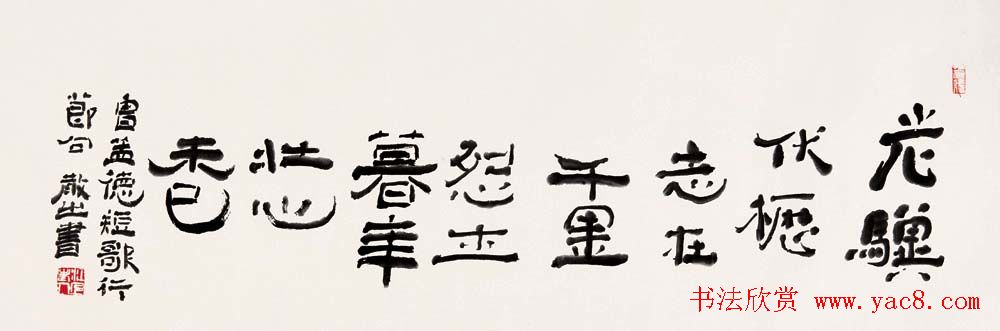 老驥
伏櫪
志在
千里
烈士
暮年
壯心
未已
曹孟德短歌行
節句 散之書
书法欣赏 www.yac8.com